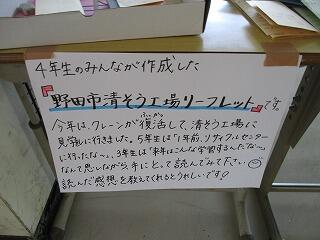 4年生のみんなが作成した
『野田市清そう工場リーフレット』です。
今年は、クレーンが復活して、清そう工場に
ふっかつ
見学に行きました。5年生は「1年前、リサイクルセンター
に行ったな〜」、3年生は「来年はこんな学習するんだな〜」
なんて思いながら、手にとって読んでみて下さい
読んだ感想を教えてくれるとうれしいです!